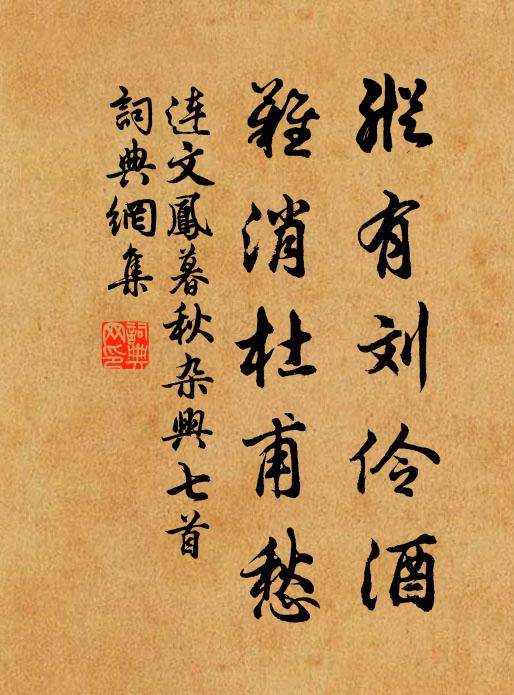 縱有刘伶酒
難消杜甫愁
连文鳳暮秋杂興七首
詞典網集
詞典
网印